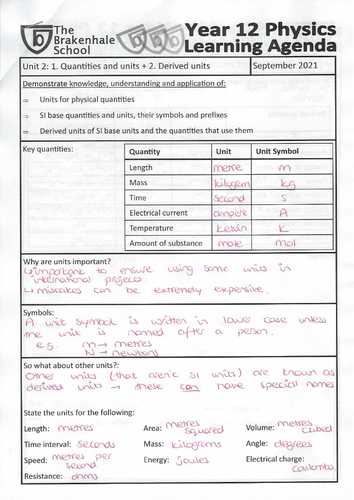 The
Brakenhale
School
Year 12 Physics
Learning Agenda
Unit 2: 1. Quantities and units + 2. Derived units
September 2021
Demonstrate knowledge, understanding and application of:
⇒ Units for physical quantities
⇒ SI base quantities and units, their symbols and prefixes
⇒ Derived units of SI base units and the quantities that use them
Key quantities:
Quantity Unit Unit Symbol
Length metre m
Mass kilogram kg
Time second s
Electrical current ampere A
Temperature kelvin K
Amount of substance mole mol
Why are units important?
↳ important to ensure using same units in
international projects.
↳ mistakes can be extremely expensive.
Symbols:
A unit symbol is written in lower case unless
the unit is named after a person.
e.g. m → metres
N → newtons
So what about other units?:
Other units (that aren't SI units) are known as
derived units → these can have special names
State the units for the following:
Length: metres Area: metres squared Volume: metres cubed
Time interval: seconds Mass: kilograms Angle: degrees
Speed: metres per second Energy: joules Electrical charge: coulombs
Resistance: ohms